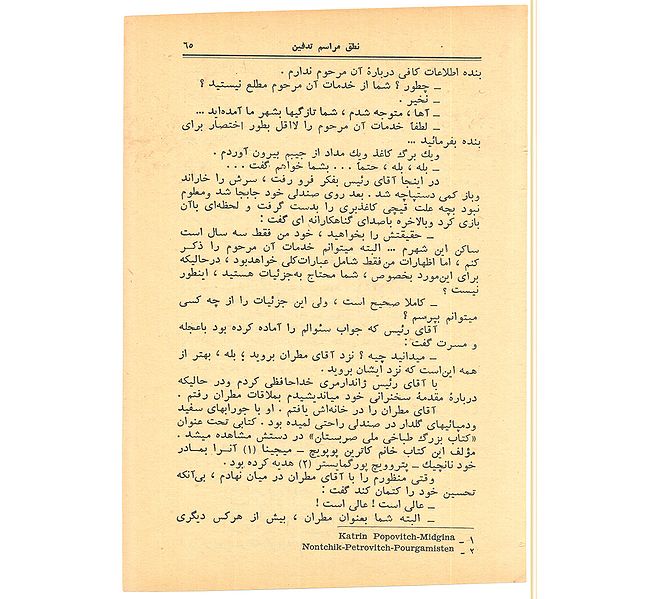 نطق مراسم تدفین ۶۵
بنده اطلاعات کافی دربارهٔ آن مرحوم ندارم .
ــ چطور ؟ شما از خدمات آن مرحوم مطلع نیستید ؟
ــ نخیر .
ــ آها ، متوجه شدم ، شما تازگیها بشهر ما آمده‌اید ...
ــ لطفاً خدمات آن مرحوم را لااقل بطور اختصار برای
بنده بفرمائید ...
ویك برگ کاغذ ویك مداد از جیبم بیرون آوردم .
ــ بله ، بله ، حتماً ... بشما خواهم گفت ...
در اینجا آقای رئیس بفکر فرو رفت ، سرش را خاراند
وباز کمی دستپاچه شد . بعد روی صندلی خود جابجا شد ومعلوم
نبود بچه علت قیچی کاغذبری را بدست گرفت و لحظه‌ای باآن
بازی کرد وبالاخره باصدای گناهکارانه ای گفت :
ــ حقیقتش را بخواهید ، خود من فقط سه سال است
ساکن این شهرم ... البته میتوانم خدمات آن مرحوم را ذکر
کنم ، اما اظهارات من فقط شامل عبارات‌کلی خواهدبود ، درحالیکه
برای این‌مورد بخصوص ، شما محتاج به‌جزئیات هستید ، اینطور
نیست ؟
ــ کاملا صحیح است ، ولی این جزئیات را از چه کسی
میتوانم بپرسم ؟
آقای رئیس که جواب سئوالم را آماده کرده بود باعجله
و مسرت گفت :
ــ میدانید چیه ؟ نزد آقای مطران بروید ؛ بله ، بهتر از
همه این‌است که نزد ایشان بروید .
با آقای رئیس ژاندارمری خداحافظی کردم ودر حالیکه
دربارهٔ مقدمهٔ سخنرانی خود میاندیشیدم بملاقات مطران رفتم .
آقای مطران را در خانه‌اش یافتم . او با جورابهای سفید
ودمپائیهای گلدار در صندلی راحتی لمیده بود . کتابی تحت عنوان
«کتاب بزرگ طباخی ملی صربستان» در دستش مشاهده میشد .
مؤلف این کتاب خانم کاترین پوپویچ ــ میجینا (۱) آنرا بمادر
خود نانچیك ــ پتروویچ پورگمایستر (۲) هدیه کرده بود .
وقتی منظورم را با آقای مطران در میان نهادم ، بی‌آنکه
تحسین خود را کتمان کند گفت :
ــ عالی است ! عالی است !
ــ البته شما بعنوان مطران ، بیش از هرکس دیگری
۱ ــ Katrin Popovitch-Midgina
۲ ــ Nontchik-Petrovitch-Pourgamisten